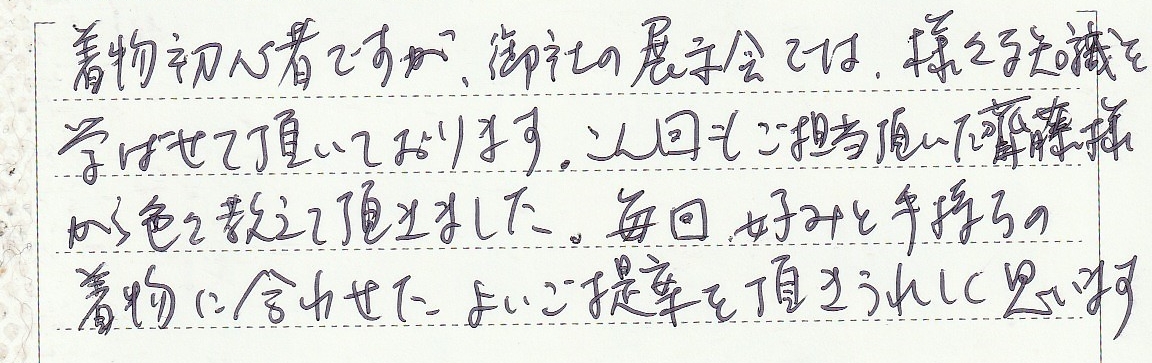 着物初心者ですが、御社の展示会では、様々な知識を
学ばせて頂いております。今回もご担当頂いた齋藤様
から色々教えて頂きました。毎回、好みと手持ちの
着物に合わせた、よいご提案を頂きうれしく思います